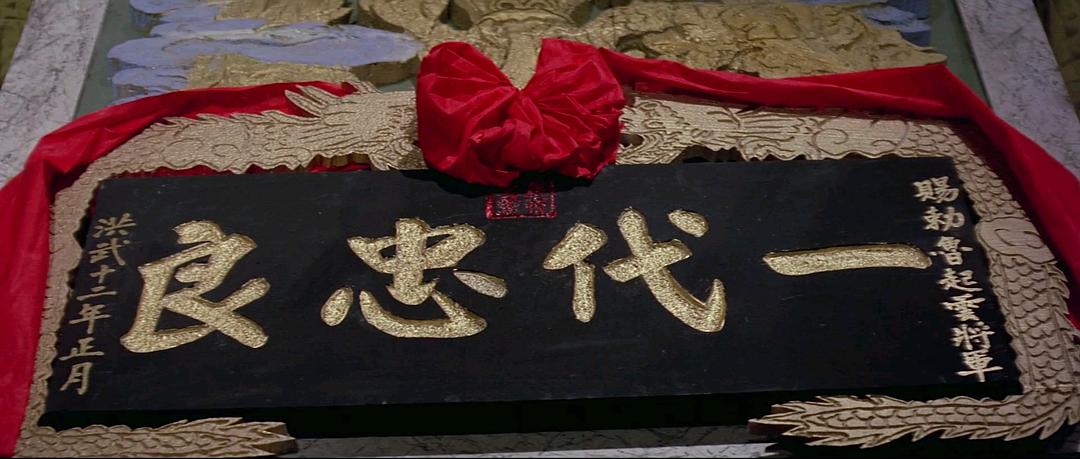 賜勅魯起雲將軍
一代忠良
洪武十二年正月